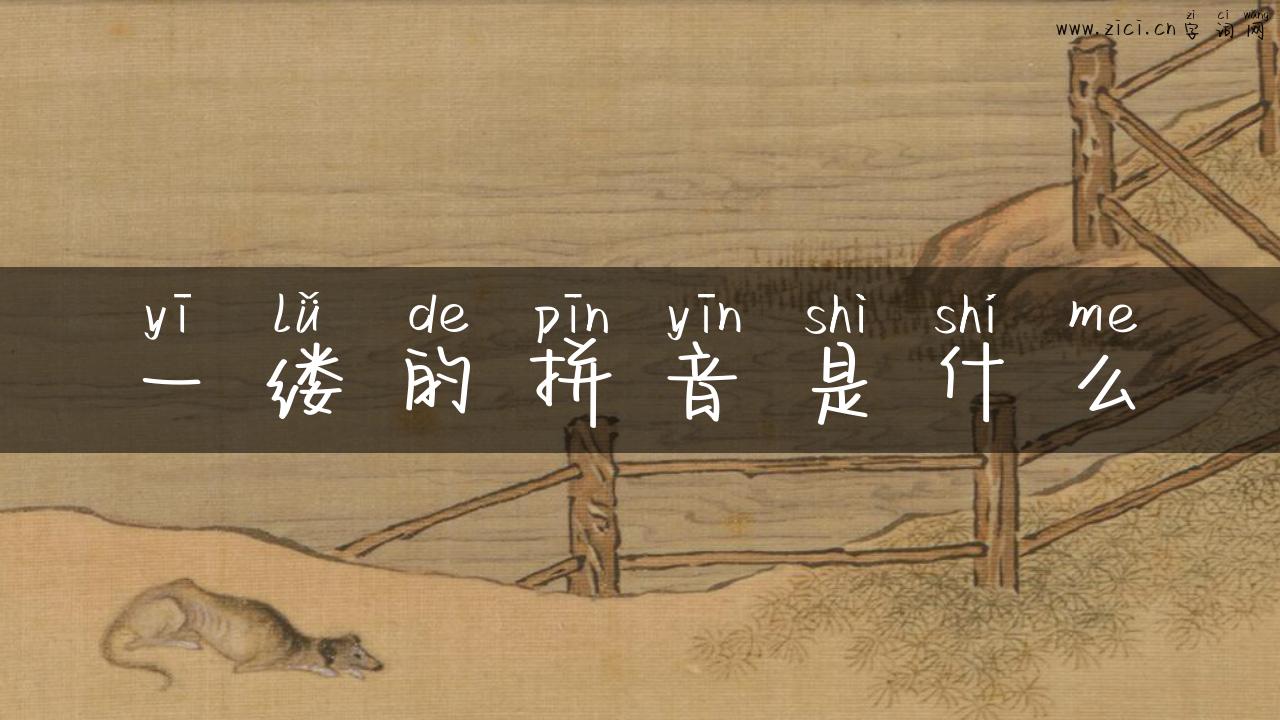 zì cí wǎng
www.zici.cn 字词网
yī lǚ de pīn yīn shì shí me
一缕的拼音是什么